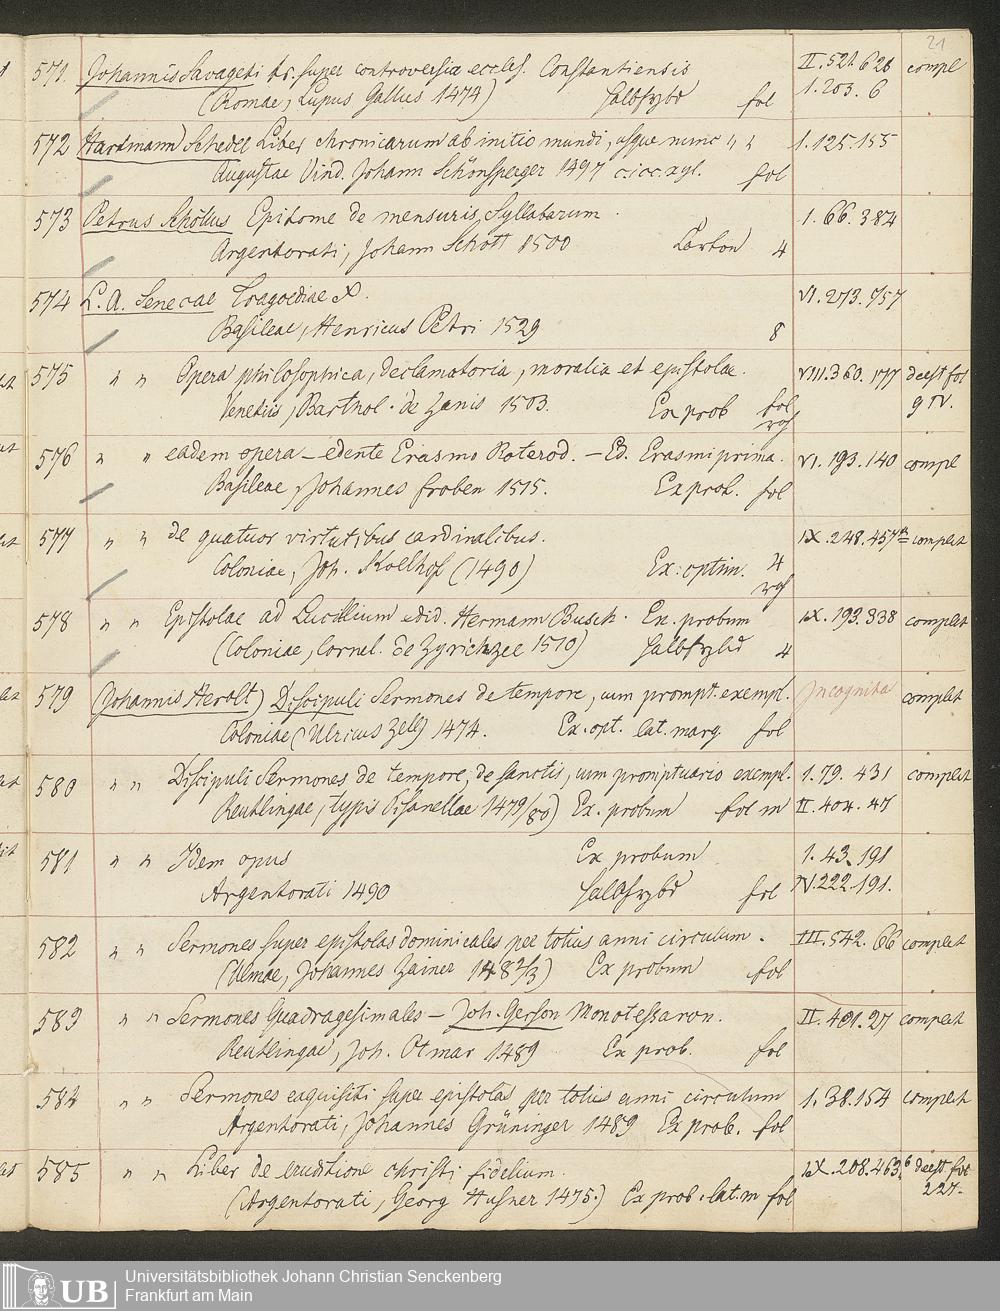 21
571. Johannis Savageti tr. super controversia eccles. Constantiensis II. 521. 628 compl
(Romae, Lupus Gallus 1474) Halbfrzbd fol 1. 203. 6
572 Hartmann Schedel Liber chronicarum ab initio mundi, usque nunc " " 1. 125. 155
Augustae Vind. Johann Schönsperger 1497 c. icc. xyl. fol
573 Petrus Schottus Epitome de mensuris, Syllabarum. 1. 66. 384
Argentorati, Johann Schott 1500 Carton 4
574 L. A. Senecae Tragoediae X. VI. 273. 757
Basileae, Henricus Petri 1529 8
575 " " Opera philosophica, declamatoria, moralia et epistolae. VIII. 360. 777 deest fol
Venetiis, Barthol. de Zanis 1503. Ex prob fol 9 IV.
576 " " eadem opera – edente Erasmo Roterod. – Ed. Erasmi prima. VI. 193. 140 compl
Basileae, Johannes Froben 1515. Ex prob. fol
577 " " de quatuor virtutibus cardinalibus. IX. 248. 457 complet
Coloniae, Joh. Koelhof (1490) Ex: optim. 4
578 " " Epistolae ad Lucillium edid. Hermann Busch. Ex. probum IX. 193. 338 complet
(Coloniae, Cornel. de Zyrichzee 1510) Halbfrzbd 4
579 (Johannis Herolt) Discipuli Sermones de tempore, cum prompt. exempl. Incognita complet
Coloniae (Ulricus Zell) 1474. Ex. opt. lat. marg. fol
580 " " Discipuli Sermones de tempore, de sanctis, cum promptuario exempl. 1. 79. 431 complet
Reutlingae, typis Pisanellae 1479/80) Ex. probum fol m II. 404. 47
581 " " Idem opus Ex probum 1. 43. 191
Argentorati 1490 Halbfrzbd fol IV. 222. 191.
582 " " Sermones super epistolas dominicales per totius anni circulum. III. 542. 66 complet
(Ulmae, Johannes Zainer 1482/3) Ex probum fol
583 " " Sermones Quadragesimales – Joh. Gerson Monotessaron. II. 401. 27 complet
Reutlingae, Joh. Otmar 1489 Ex prob. fol
584 " " Sermones exquisiti super epistolas per totius anni circulum 1. 38. 154 complet
Argentorati, Johannes Grüninger 1489 Ex prob. fol
585 " " Liber de eruditione christi fidelium. IX. 208. 463. 6 deest fol
(Argentorati, Georg Husner 1475.) Ex prob. lat. m fol 227.
UB
Universitätsbibliothek Johann Christian Senckenberg
Frankfurt am Main